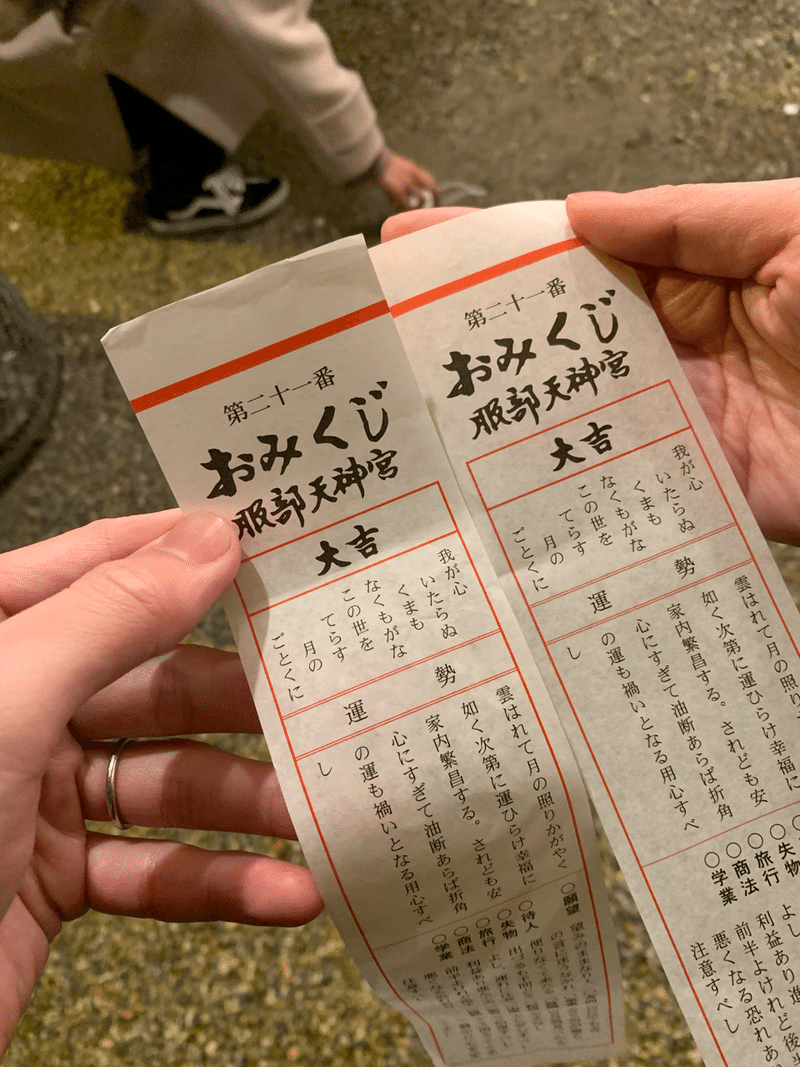 第二十一番
おみくじ
服部天神宮
大吉
我が心
いたらぬ
くまも
なくもがな
この世を
てらす
月の
ごとくに
運勢
雲はれて月の照りかがやく
如く次第に運ひらけ幸福に
家内繁昌する。されども安
心にすぎて油断あらば折角
の運も禍いとなる用心すべ
し
○願望 望みのままなり
○待人
○失物
○旅行 よし
○商法 利益あり
○学業 前半よけれど
第二十一番
おみくじ
服部天神宮
大吉
我が心
いたらぬ
くまも
なくもがな
この世を
てらす
月の
ごとくに
運勢
雲はれて月の照り
如く次第に運ひらけ幸福に
家内繁昌する。されども安
心にすぎて油断あらば折角
の運も禍いとなる用心すべ
し
○失物
○旅行 よし
○商法 利益あり進
○学業 前半よけれど後
悪くなる恐れあ
注意すべし